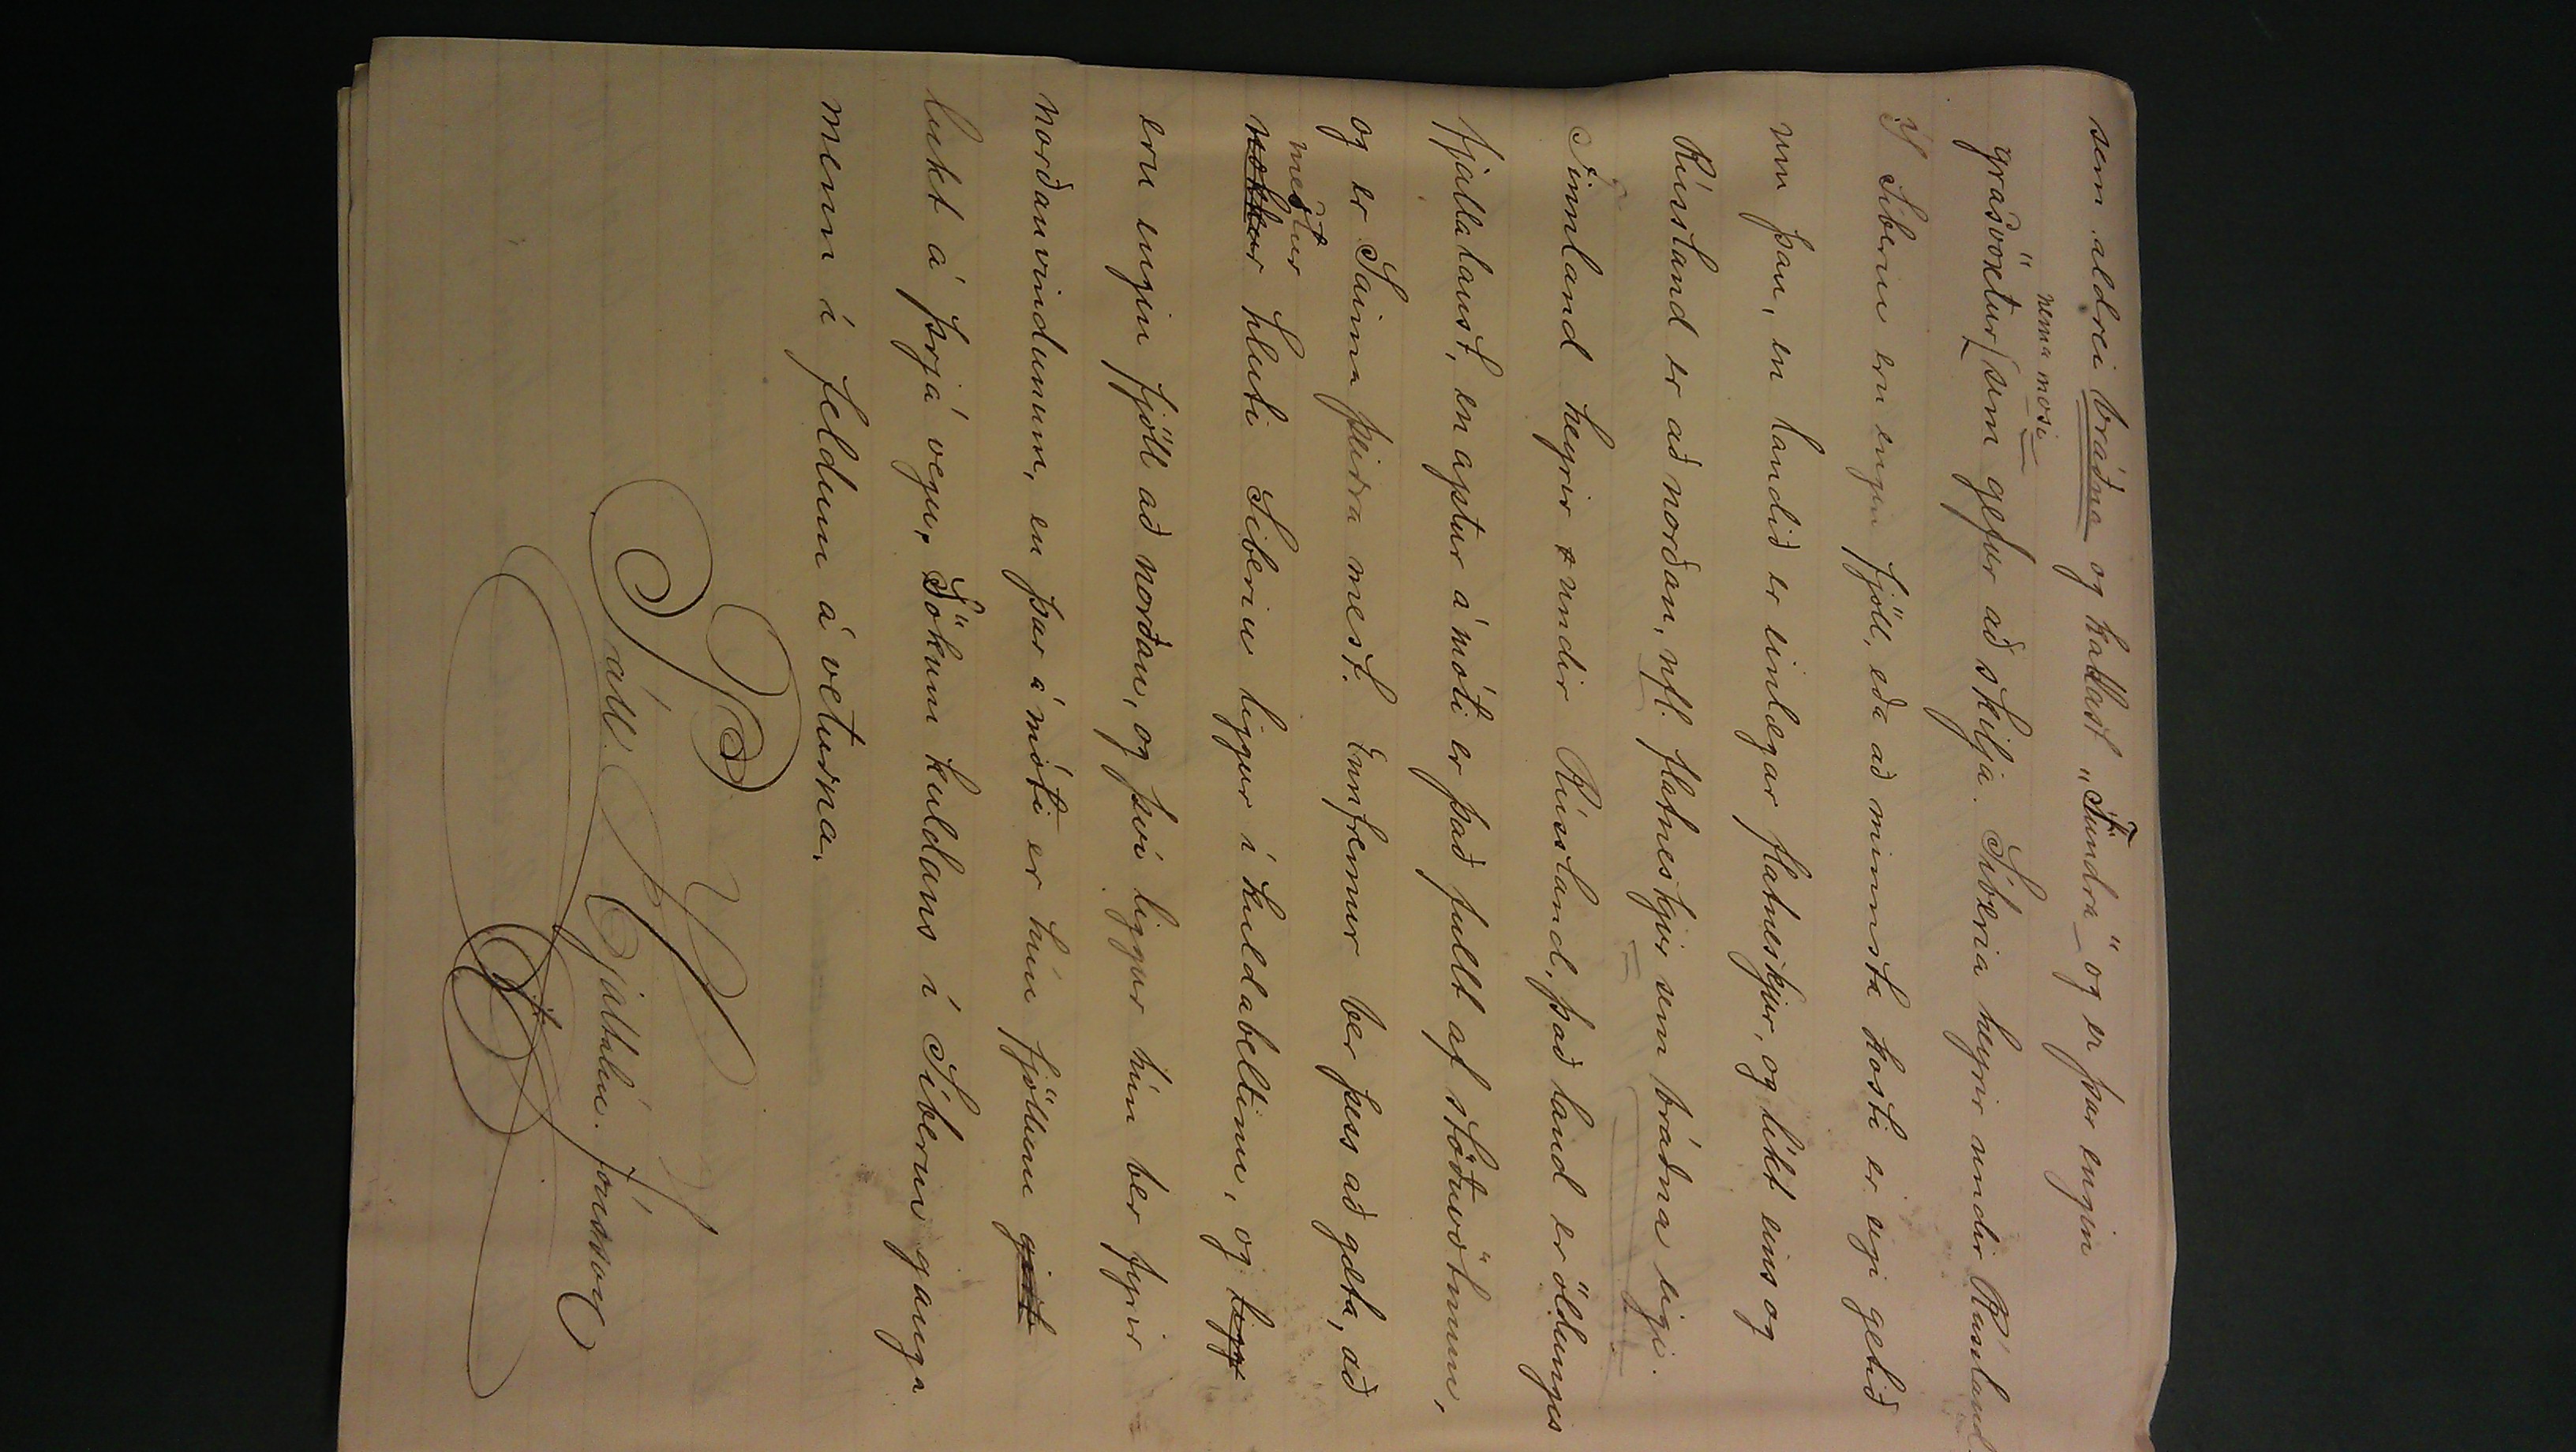 sem aldrei bráðna og kallast „Tundra" og er þar engin
nema mosi
grasvöxtur, sem gefur að skilja. Síberia heyrir undir Rúsland.
Í Síberiu eru engin fjöll, eða að minnsta kosti er egi getið
um þau, en landið er einlægar flatneskjur, og líkt eins og
Rúsland er að norðan, nfl. flatneskjur sem bráðna eigi.
Finnland heyrir undir Rússland, það land er öldungis
fjallalaust, en aptur á móti er það fullt af stöðuvötnum,
og er Saima þeirra mest. Ennfremur ber þess að gæta, að
mestur
nokkur hluti Siberiu liggur í kuldabeltinu, og ligg
eru engin fjöll að norðan, og því liggur hún ber fyrir
norðanvindunum, en þar á móti er hún fjöllum girt
lukt á þrjá vegu. Sökum kuldans í Síberiu ganga
menn í feldum á veturna.
Páll Hjaltalín Jónsson